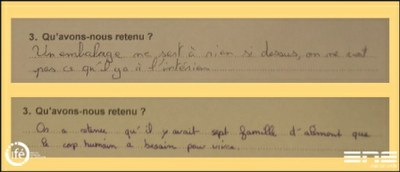 3. Qu'avons-nous retenu ?
Un embalage ne sert à rien si dessus, on ne voit
pas ce qu'il y a à l'intérieur
3. Qu'avons-nous retenu ?
On a retenue qu'il y avait sept famille d'aliment que
le corp humain a besoin pour vivre.
ifé
ENS